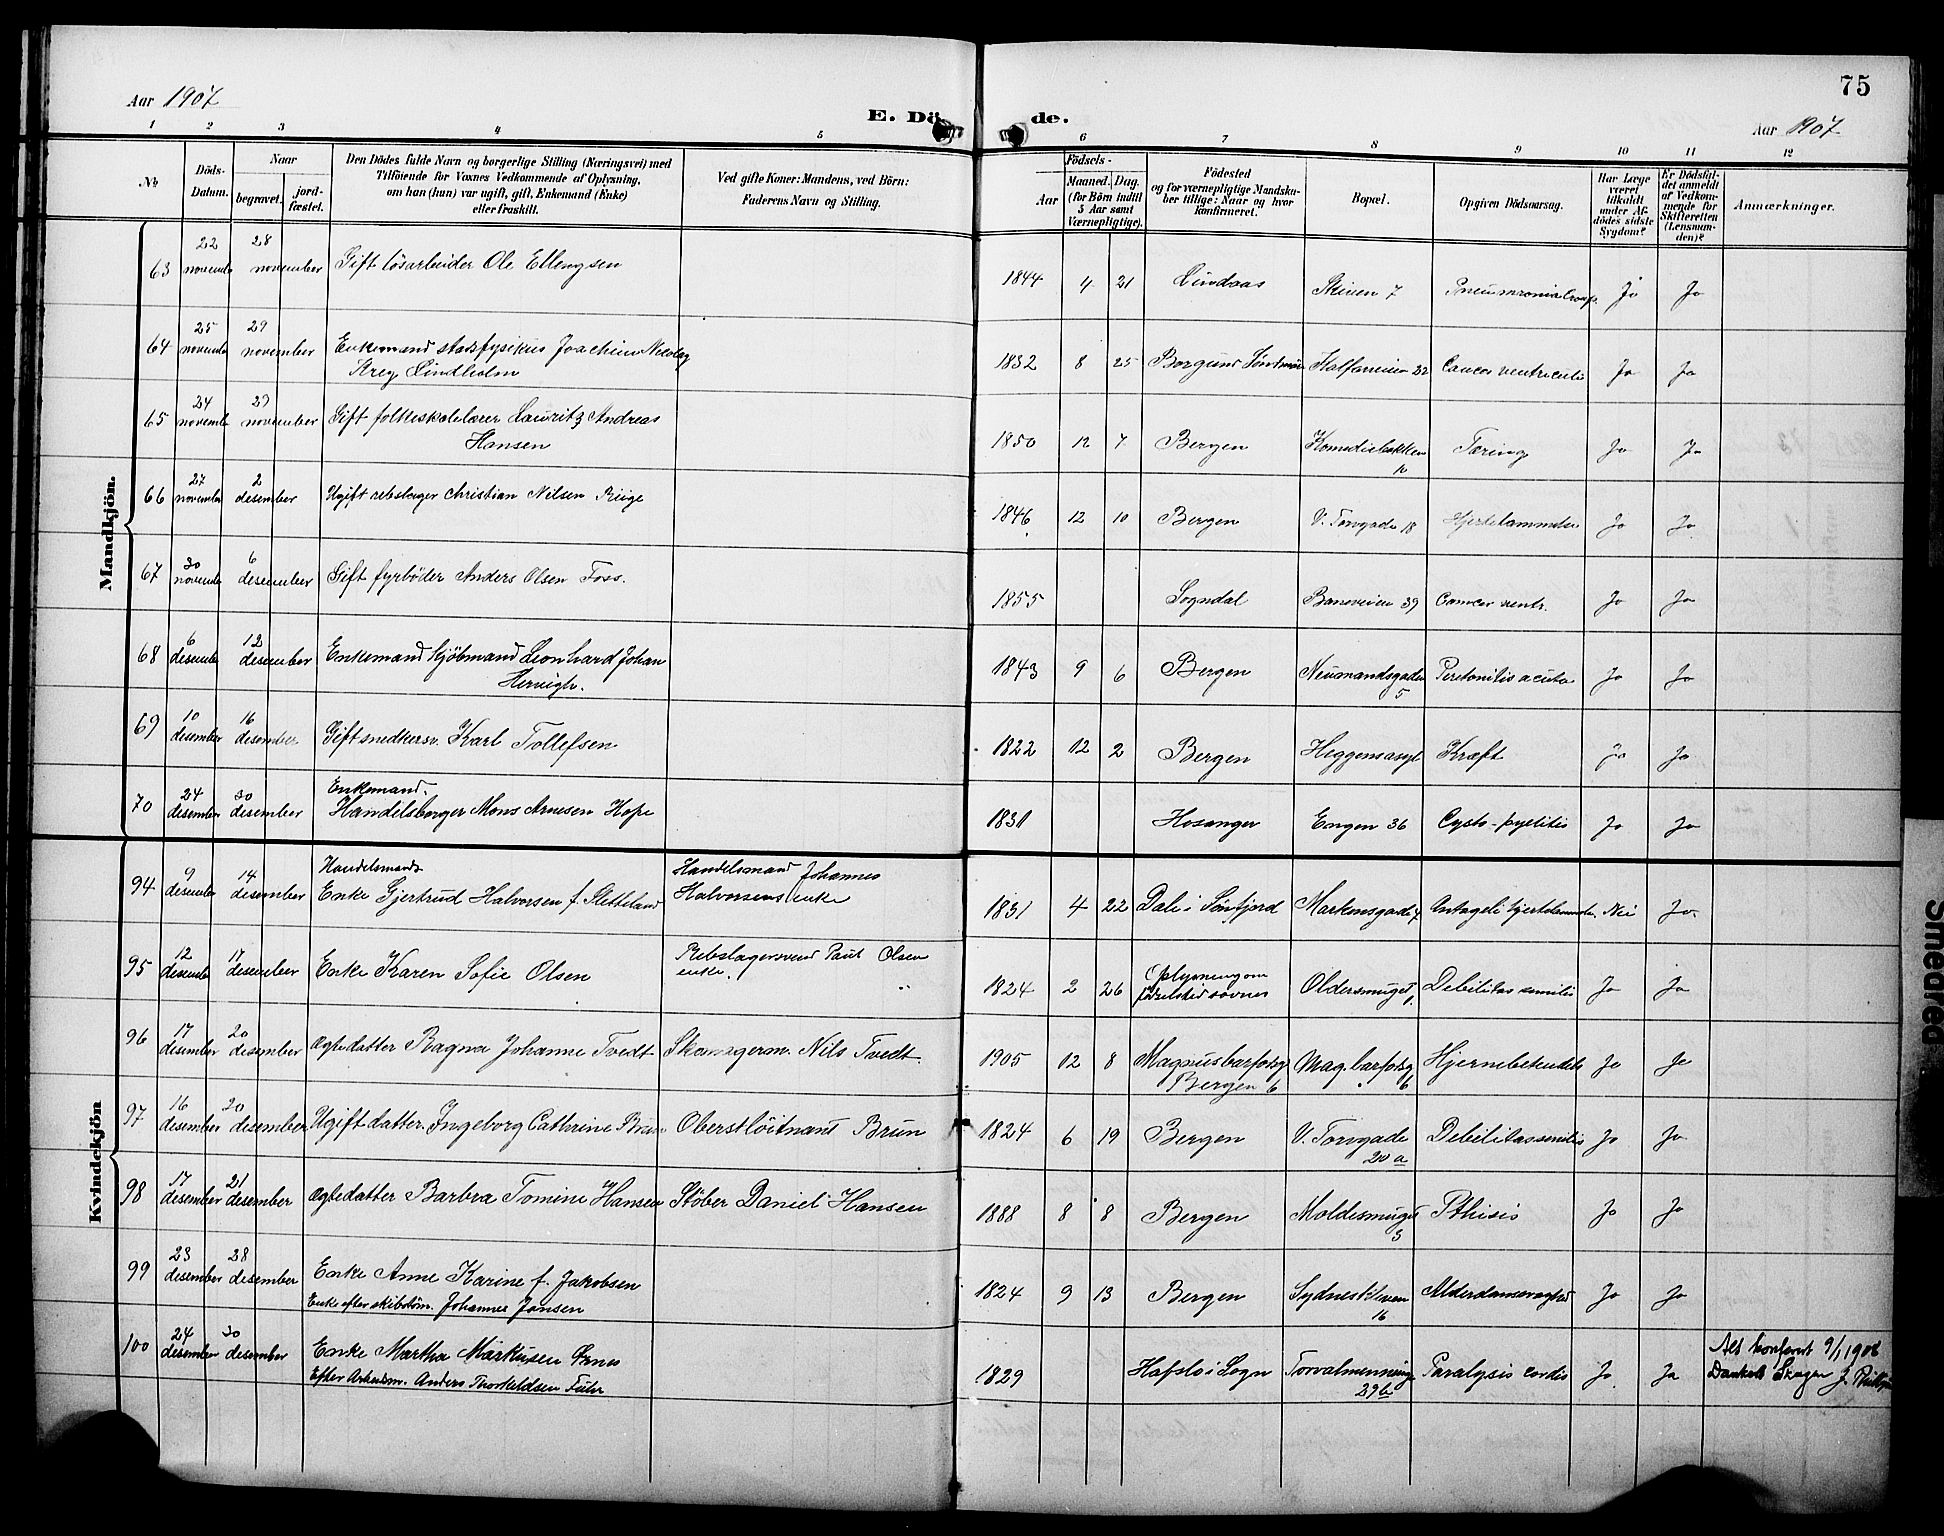 Aar 1907
E. Dö
de.
75
Aar 1907
1 2 3 4 5 6 7 8 9 10 11 12
No
Döds-Datum.
Naar
begravet.
jord-fæstet.
Den Dödes fulde Navn og borgerlige Stilling (Næringsvei) med
Tilföiende for Voxnes Vedkommende af Oplysning,
om han (hun) var ugift, gift, Enkemand (Enke)
eller fraskilt.
Ved gifte Koner: Mandens, ved Börn:
Faderens Navn og Stilling.
Födsels-
Aar
Maaned. Dag.
(for Börn indtil
5 Aar samt
Værnepligtige).
Födested
og for værnepligtige Mandsku-
ber tillige: Naar og hvor
konfirmeret.
Bopæl.
Opgiven Dödsaarsag.
Har Læge
været
tilkaldt
under Af-
dödes sidste
Sygdom?
Er Dödsfal-
det anmeldt
af Vedkom-
mende for
Skifteretten
(Lensman-
den)?
Anmærkninger.
Mandkjön.
63 22 november 28 november Gift lösarbeider Ole Ellingsen 1844 4 21 Lindaas Skiven 7 Ja Ja
64 25 november 29 november Enkemand stadsfysikus Joachim Nicolay
Krey Lindholm 1832 8 25 Borgund Söndmör Kalfarveien 22 Cancer ventriculi Ja Ja
65 24 november 29 november Gift folkeskolelærer Lauritz Andreas
Hansen 1850 12 7 Bergen Komediebakken Tæring Ja Ja
66 27 november 2 desember Ugift rebslager Christian Nilsen Riige 1846 12 10 Bergen V. Torvgade 18 Hjertelammelse Ja Ja
67 30 november 6 desember Gift fyrböder Anders Olsen Foss. 1855 Sogndal Baneveien 39 Cancer ventr. Ja Ja
68 6 desember 12 desember Enkemand kjöbmand Leonhard Johan
1843 9 6 Bergen Neumandsgaden 5 Peritonitis acuta Ja Ja
69 10 desember 16 desember Gift snedkersv. Karl Tollefsen 1822 12 2 Bergen Heggensasyl Kræft Ja Ja
70 24 desember 30 desember Enkemand.
Handelsborger Mons Arnesen Hope 1831 Hosanger Engen 36 Cysto-pyelitis Ja Ja
Kvindekjön
94 9 desember 14 desember Handelsmands
Enke Gjertrud Halvorsen f. Sletteland Handelsmand Johannes
Halvorsens enke 1831 4 22 Dale i Söndfjord Markensgade 7 Antageli hjertelammelse Nei Ja
95 12 desember 17 desember Enke Karen Sofie Olsen Rebslagersvend Paul Olsen
enke. 1824 2 26 Oplysning om
födested savnes Oldersmuget 1 Debilitas senilis Ja Ja
96 17 desember 20 desember Ægtedatter Ragna Johanne Tvedt Skomagerm. Nils Tvedt. 1905 12 8 Magnusbarfodsg
Bergen 6 Mag. barfodsg 6 Hjernebetendelse Ja Ja
97 16 desember 20 desember Ugift datter. Ingeborg Cathrine Brun Oberstlöitnant Brun 1824 6 19 Bergen V. Torvgade
20 a Debilitas senilis Ja Ja
98 17 desember 21 desember Ægtedatter Barbra Tomine Hansen Stöber Daniel Hansen 1888 8 8 Bergen Moldesmuget
3 Pthisis Ja Ja
99 23 desember 28 desember Enke Anne Karine f. Jakobsen
Enke efter skibstöm. Johannes Jansen 1824 9 13 Bergen Sydneskleven
16 Alderdomssvaghed Ja Ja
100 24 desember 30 desember Enke Martha Markusen Ornes
Efter Arbeidsm. Anders Thorkildsen 1829 Hafslo i Sogn Torvalmenning
29 b Paralysis cordis Ja Ja Alt konferert 9/1 1908
Smedred